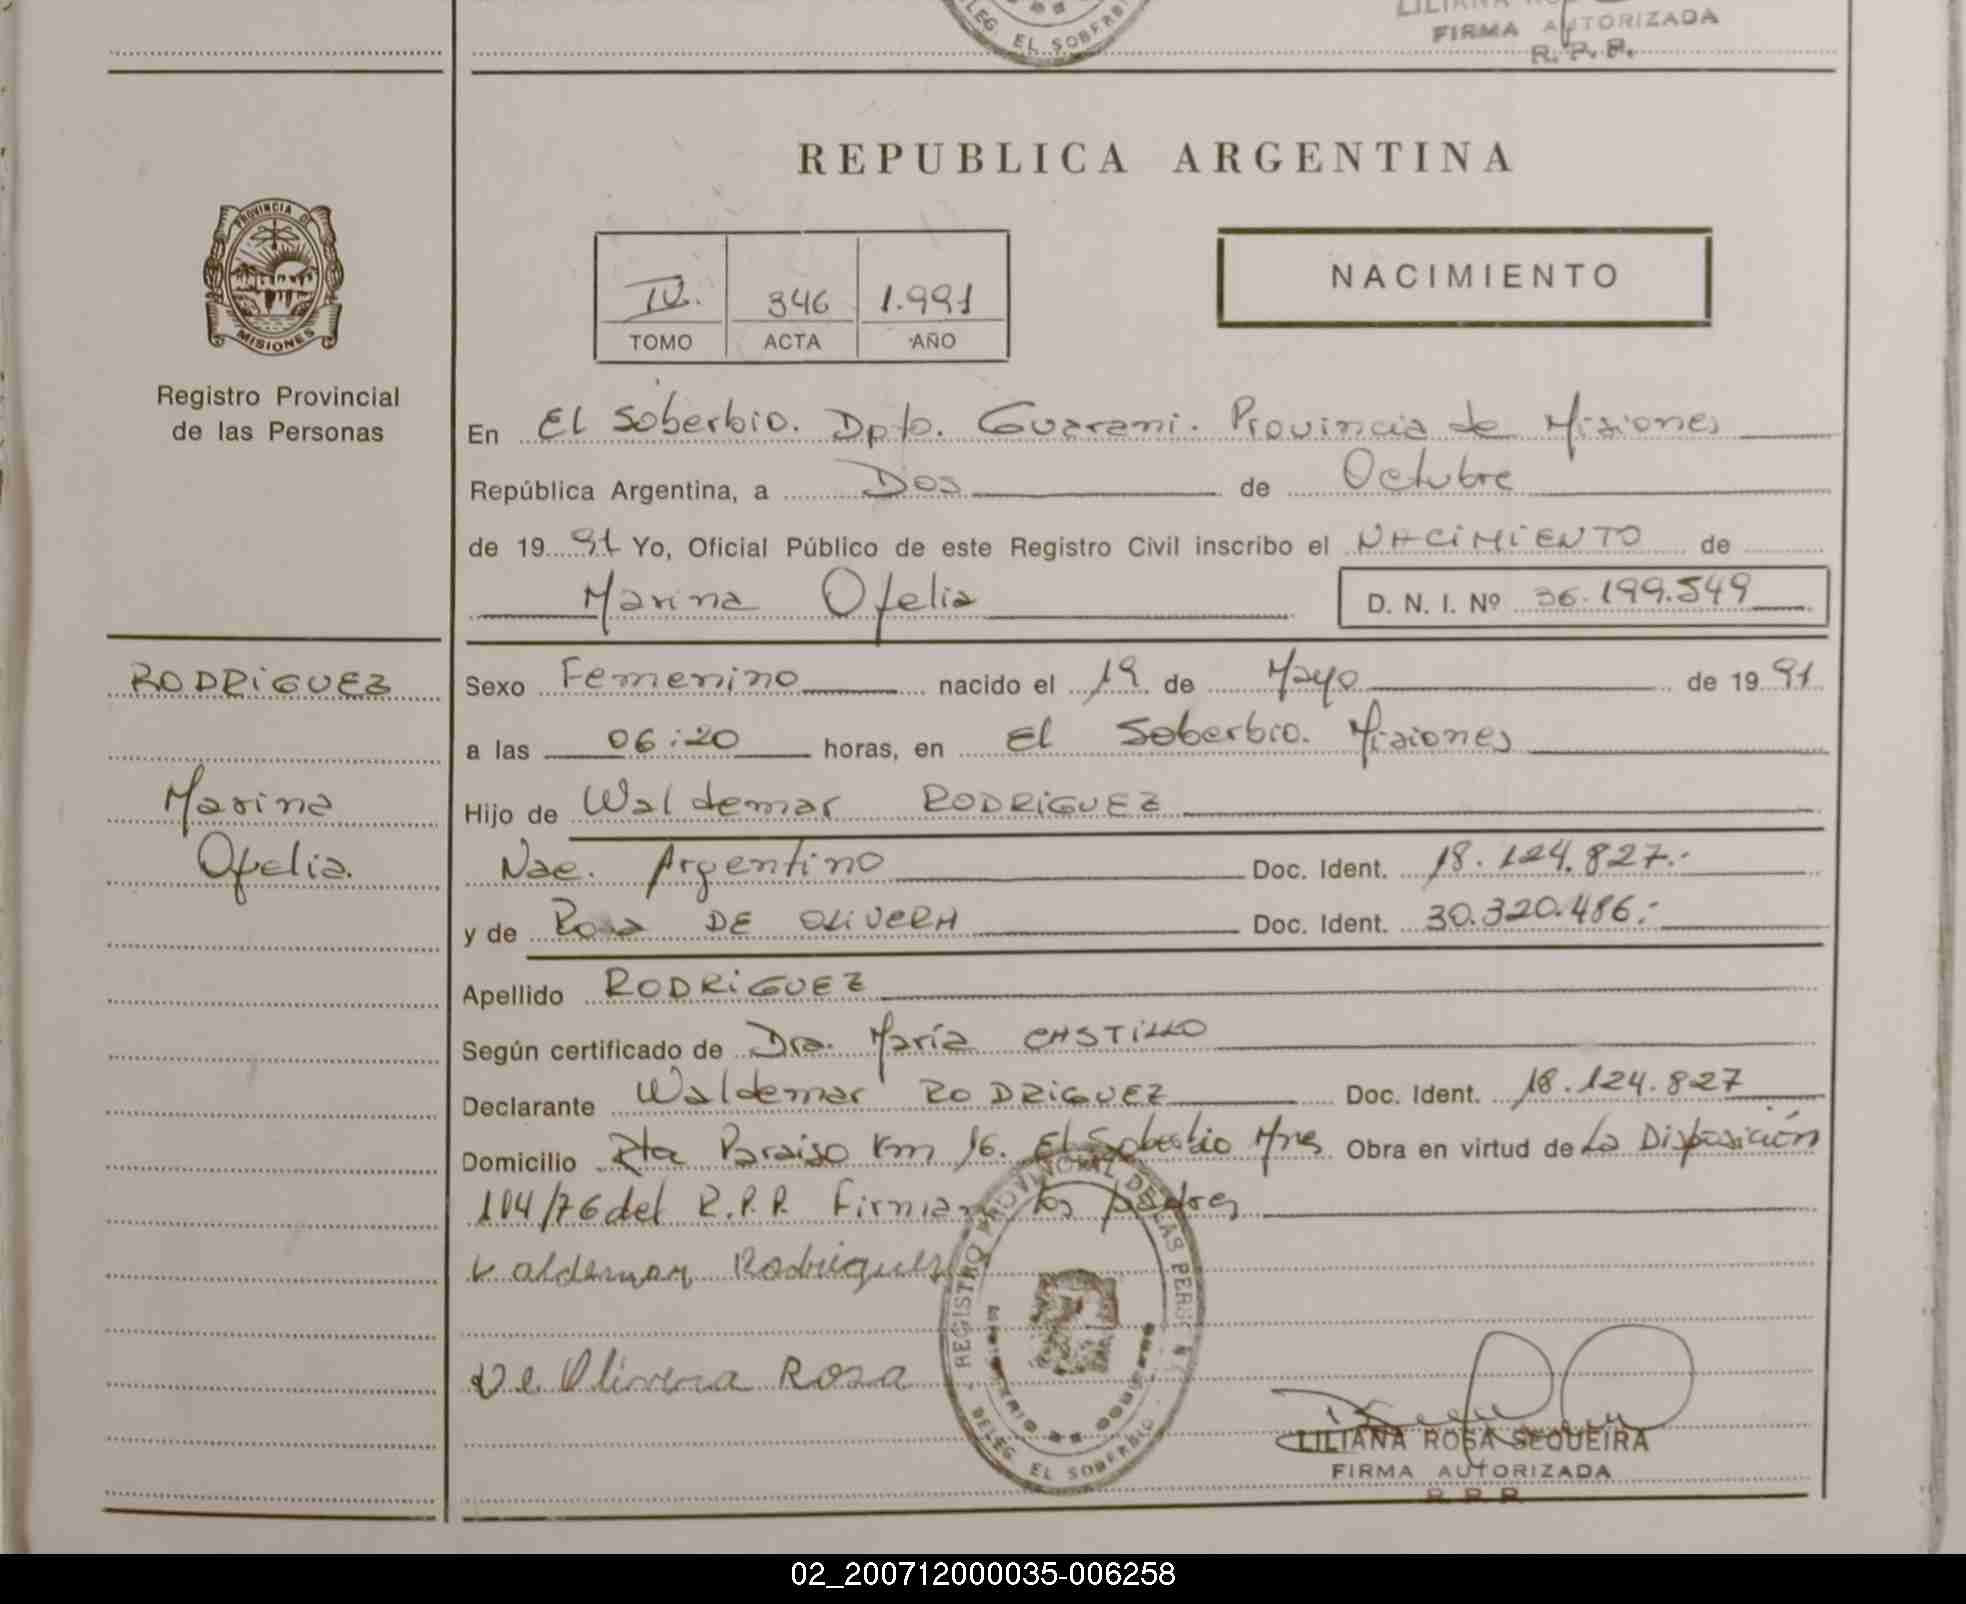 DELEG. EL SOBERBIO
FIRMA AUTORIZADA
R.P.P.
REPUBLICA ARGENTINA
PROVINCIA DE MISIONES
Registro Provincial
de las Personas
NACIMIENTO
IV. 346 1.991
TOMO ACTA AÑO
En El Soberbio. Dpto. Guarani. Provincia de Misiones
República Argentina, a Dos de Octubre
de 19 91 Yo, Oficial Público de este Registro Civil inscribo el NACIMIENTO de
Marina Ofelia D. N. I. Nº 36.199.549
RODRIGUEZ
Marina
Ofelia.
Sexo Femenino nacido el 19 de Mayo de 19 91
a las 06:20 horas, en El Soberbio. Misiones
Hijo de Waldemar RODRIGUEZ
Nac. Argentino Doc. Ident. 18.124.827.-
y de Rosa DE OLIVERA Doc. Ident. 30.320.486.-
Apellido RODRIGUEZ
Según certificado de Dra. María CASTILLO
Declarante Waldemar RODRIGUEZ Doc. Ident. 18.124.827
Domicilio Rta Paraiso Km 16. El Soberbio Mnes Obra en virtud de La Disposición
104/76 del R.P.P. Firman los padres
Valdemar Rodriguez
De Olivera Rosa
REGISTRO PROVINCIAL DE LAS PERSONAS
DELEG. EL SOBERBIO
LILIANA ROSA SEQUEIRA
FIRMA AUTORIZADA
R.P.P.
02_200712000035-006258